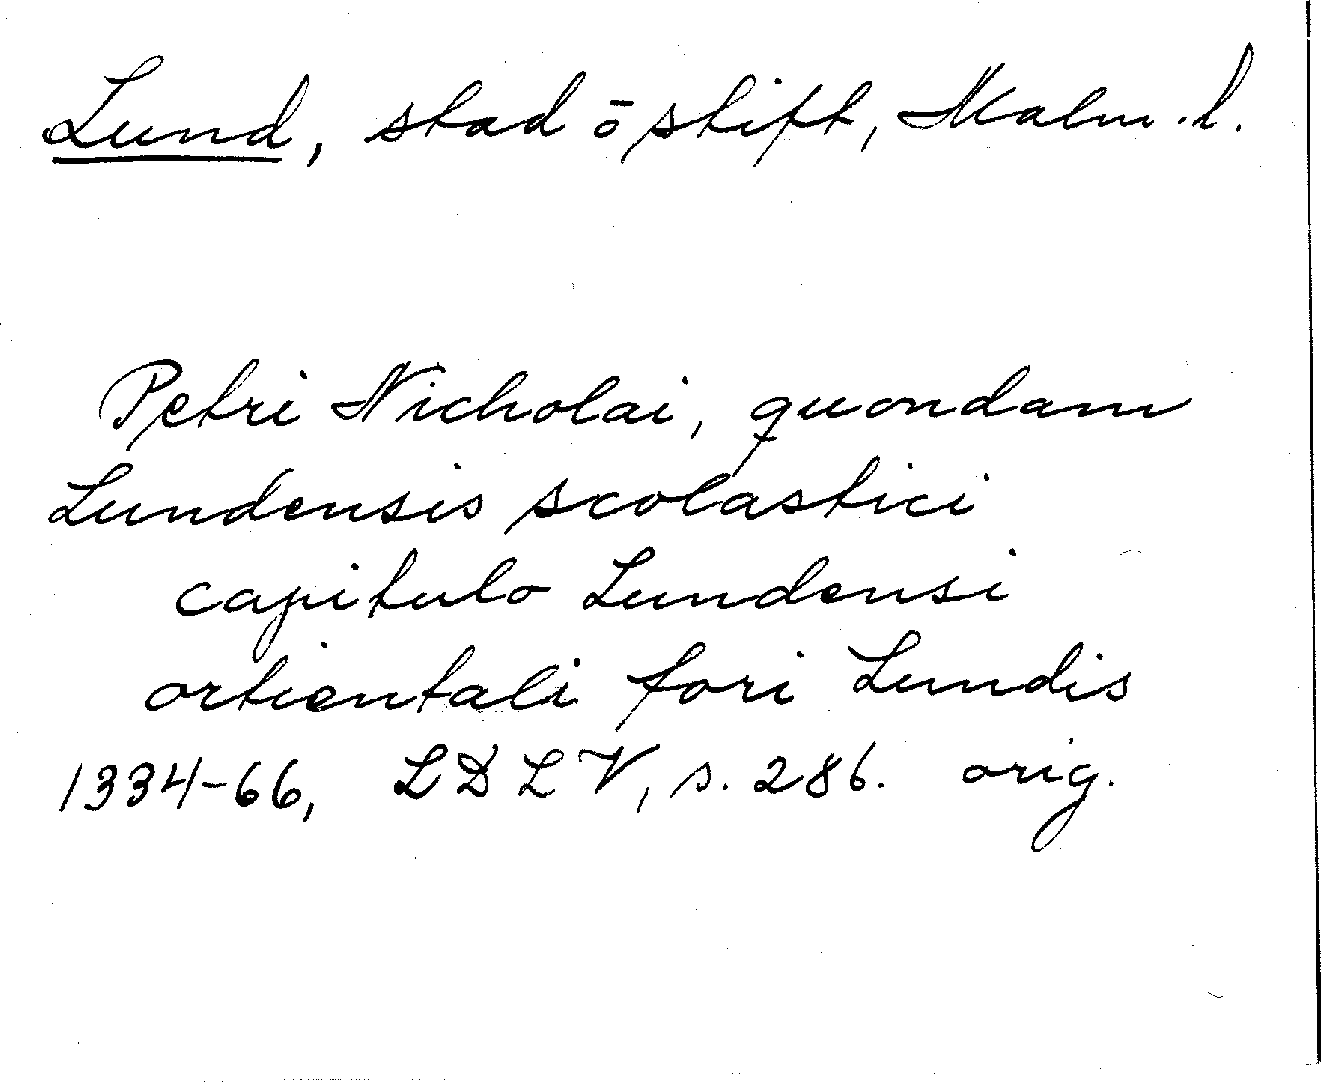 Lund, stad ō stift, Malm. l.
Petri Nicholai, quondam
Lundensis scolastici
capitulo Lundensi
ortientali fori Lundis
1334-66, LDLV, s. 286. orig.